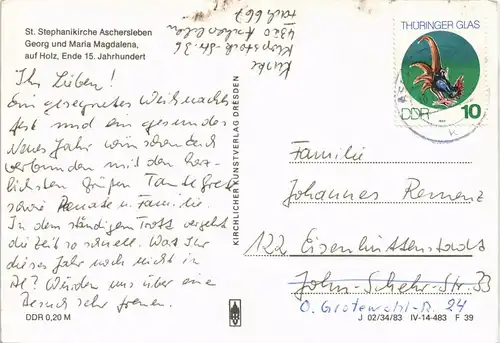 St. Stephanikirche Aschersleben
Georg und Maria Magdalena,
auf Holz, Ende 15. Jahrhundert
Klopstock-Str. 36
4320 Aschersleben
Fach 667
THÜRINGER GLAS
DDR 10
Ihr Lieben!
Ein gesegnetes Weihnachts
fest und ein gesundes
Neues Jahr wünschen
verbunden mit den herz-
lichsten Grüßen Tante
sowie Renate u. Familie.
In dem ständigen Trott vergeht
die Zeit so schnell. Wart Ihr
dieses Jahr noch nicht in
A? Würden uns über eine
Besuch sehr freuen.
KIRCHLICHER KUNSTVERLAG DRESDEN
Familie
Johannes Remenz
122 Eisenhüttenstadt
John-Schehr-Str. 33
O. Grotewohl-R. 24
DDR 0,20 M
J 02/34/83 IV-14-483 F 39